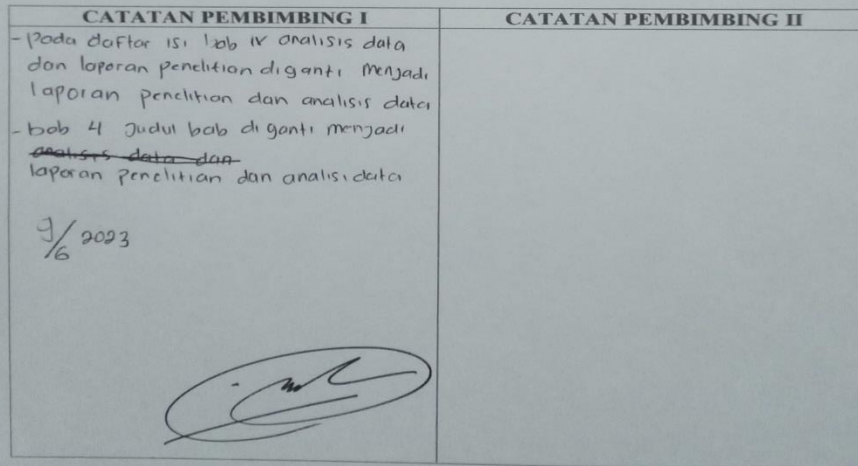 CATATAN PEMBIMBING I
CATATAN PEMBIMBING II
- Pada daftar isi bab IV analisis data
dan laporan penelitian diganti menjadi
laporan penelitian dan analisis data
- bab 4 Judul bab di ganti menjadi
analisis data dan
laporan penelitian dan analisi data
9/6 2023